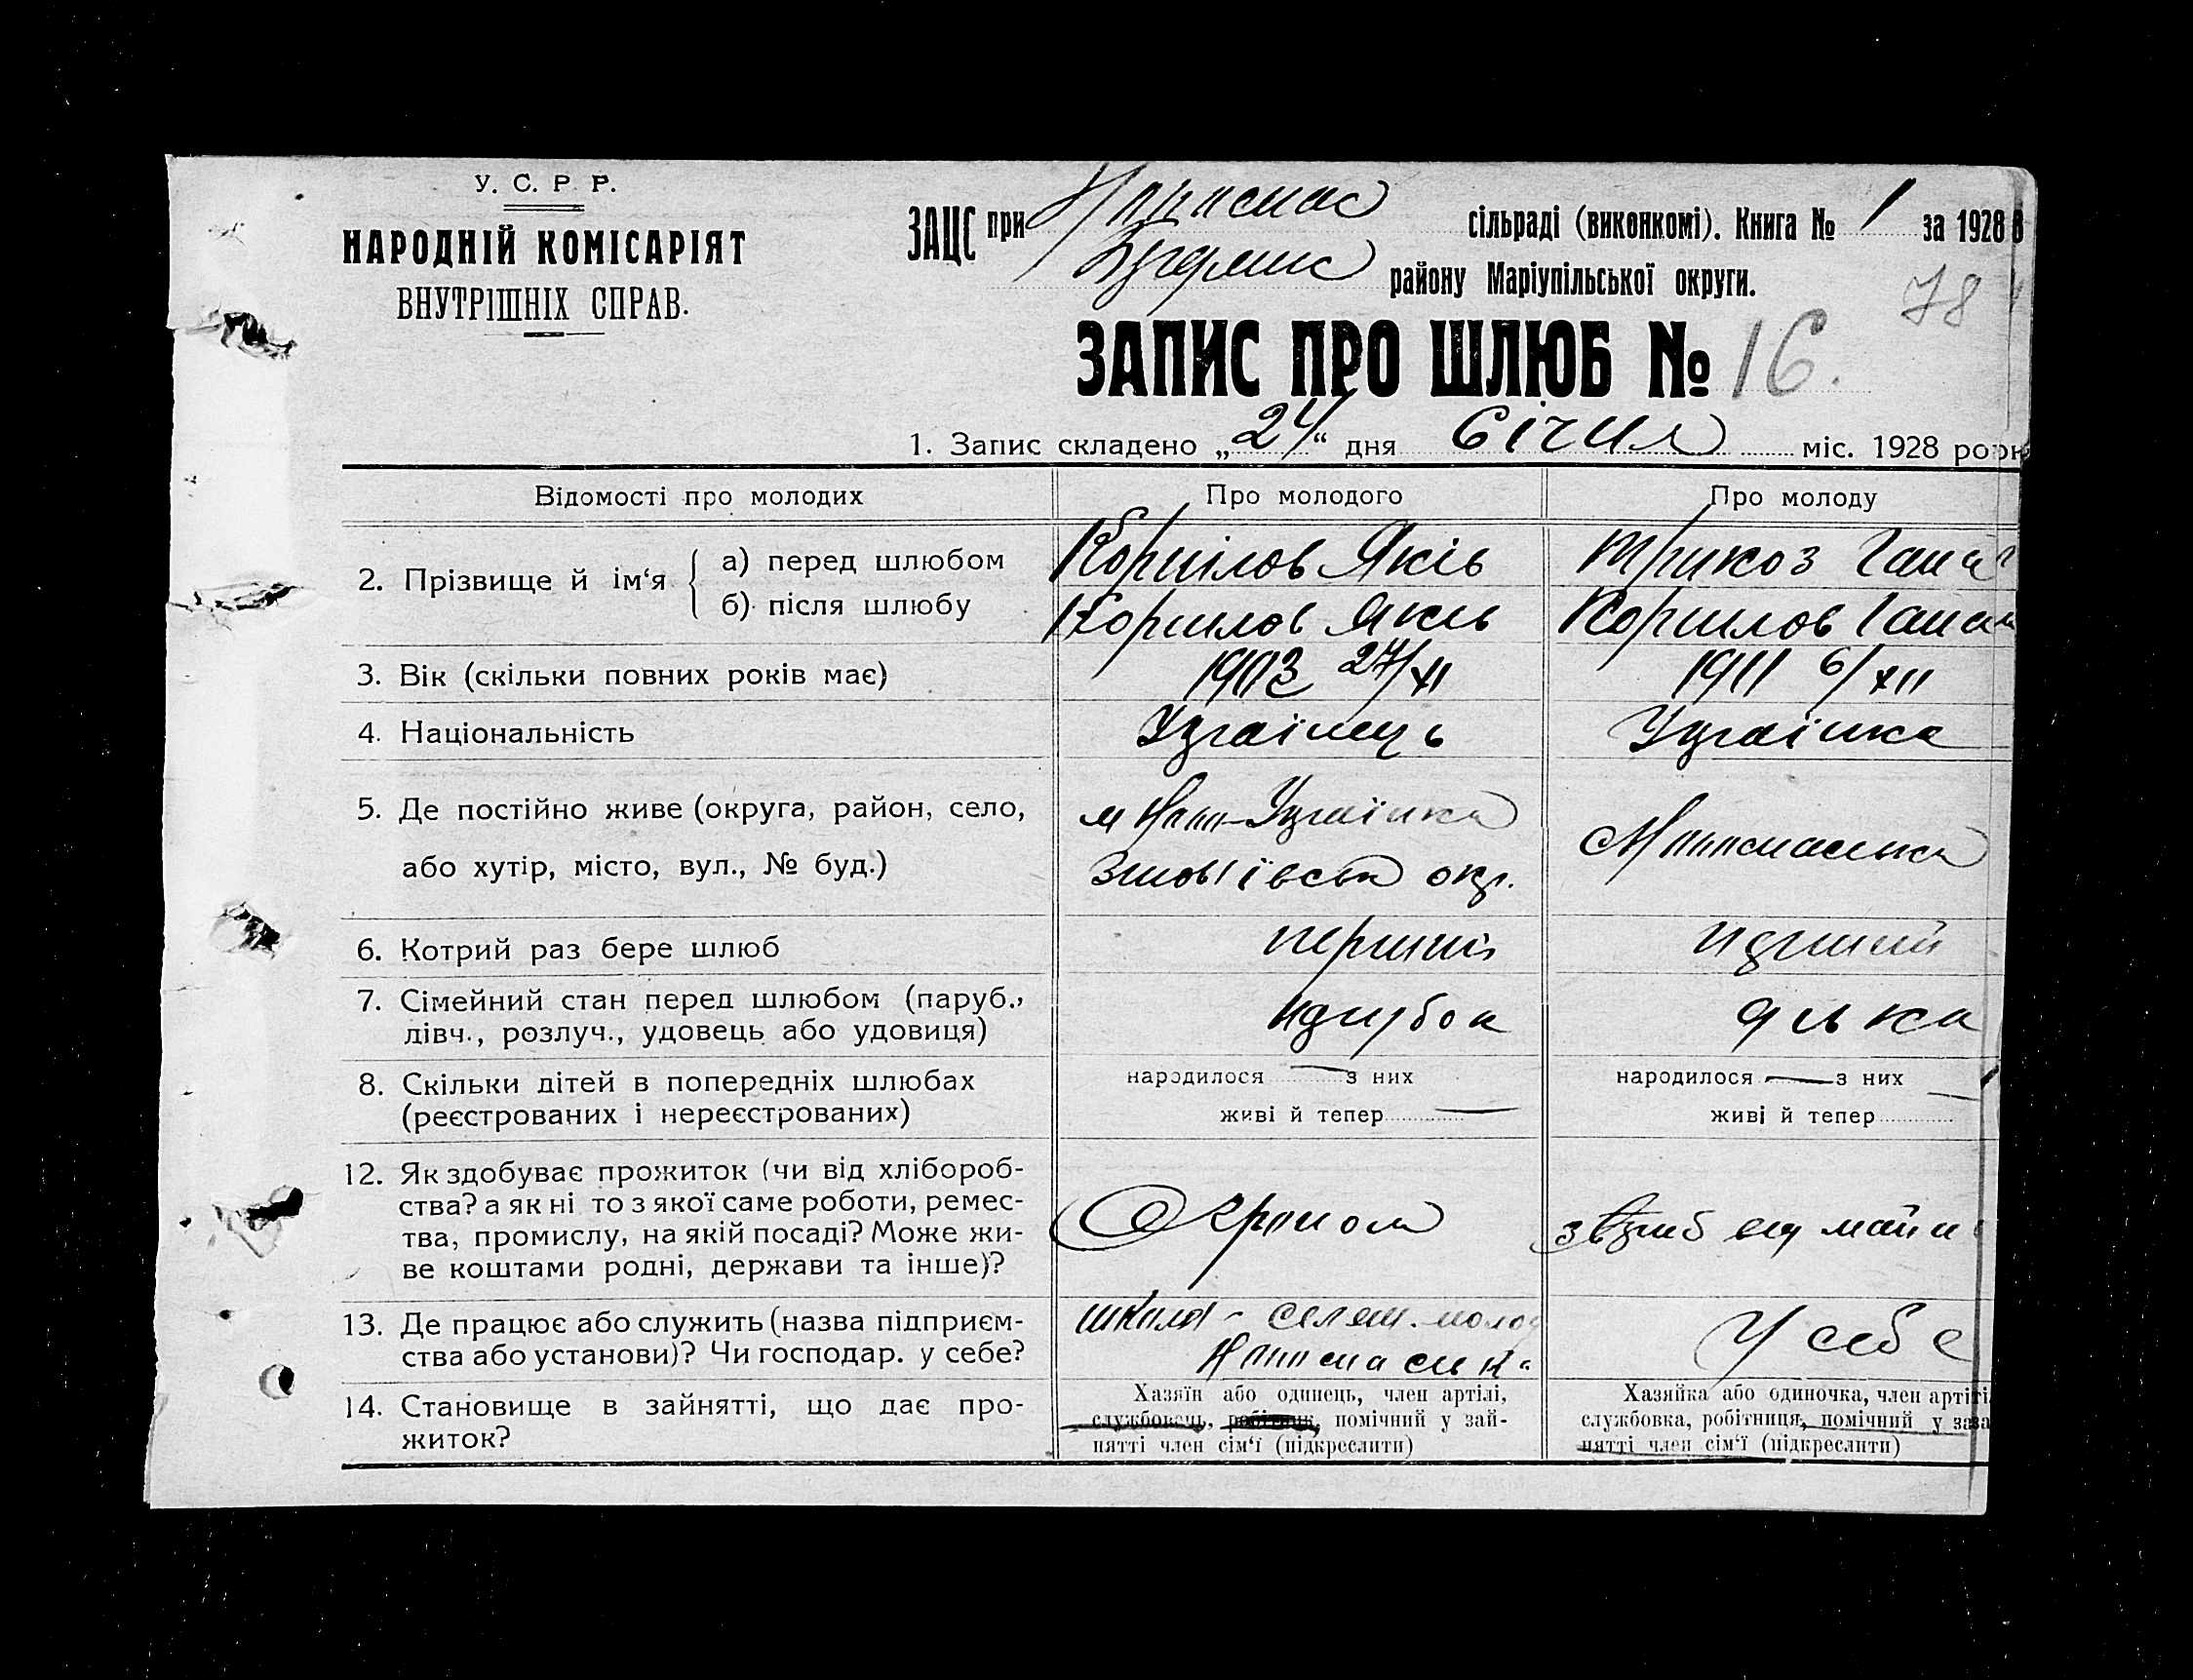 У. С. Р. Р.
НАРОДНІЙ КОМІСАРІЯТ
ВНУТРІШНІХ СПРАВ.
ЗАЦС при сільраді (виконкомі). Книга № 1 за 1928 8
району Маріупільської округи.
78
ЗАПИС ПРО ШЛЮБ № 16.
1. Запис складено „24“ дня Січня міс. 1928 рок
Відомості про молодих Про молодого Про молоду
2. Прізвище й ім‘я { а) перед шлюбом Корнілов Яків Трикоз Гана
б) після шлюбу Корнилов Яків Корнилов Гана
3. Вік (скільки повних років має) 1903 27/XI 1911 6/XII
4. Національність Українець Українка
5. Де постійно живе (округа, район, село, Українка
або хутір, місто, вул., № буд.) окр.
6. Котрий раз бере шлюб перший перший
7. Сімейний стан перед шлюбом (паруб.,
дівч., розлуч., удовець або удовиця) парубок дівка
8. Скільки дітей в попередніх шлюбах народилося — з них народилося — з них
(реєстрованих і нереєстрованих) живі й тепер — живі й тепер
12. Як здобуває прожиток (чи від хлібороб-
ства? а як ні то з якої саме роботи, ремес-
тва, промислу, на якій посаді? Може жи- Агроном
ве коштами родні, держави та інше)?
13. Де працює або служить (назва підприєм- школа - селян. молод У себе
ства або установи)? Чи господар. у себе?
14. Становище в зайнятті, що дає про-
житок?
Хазяїн або одинець, член артілі,
службовець, робітник, помічний у зай-
нятті член сім‘ї (підкреслити)
Хазяйка або одиночка, член артілі
службовка, робітниця, помічний у за
нятті член сім‘ї (підкреслити)